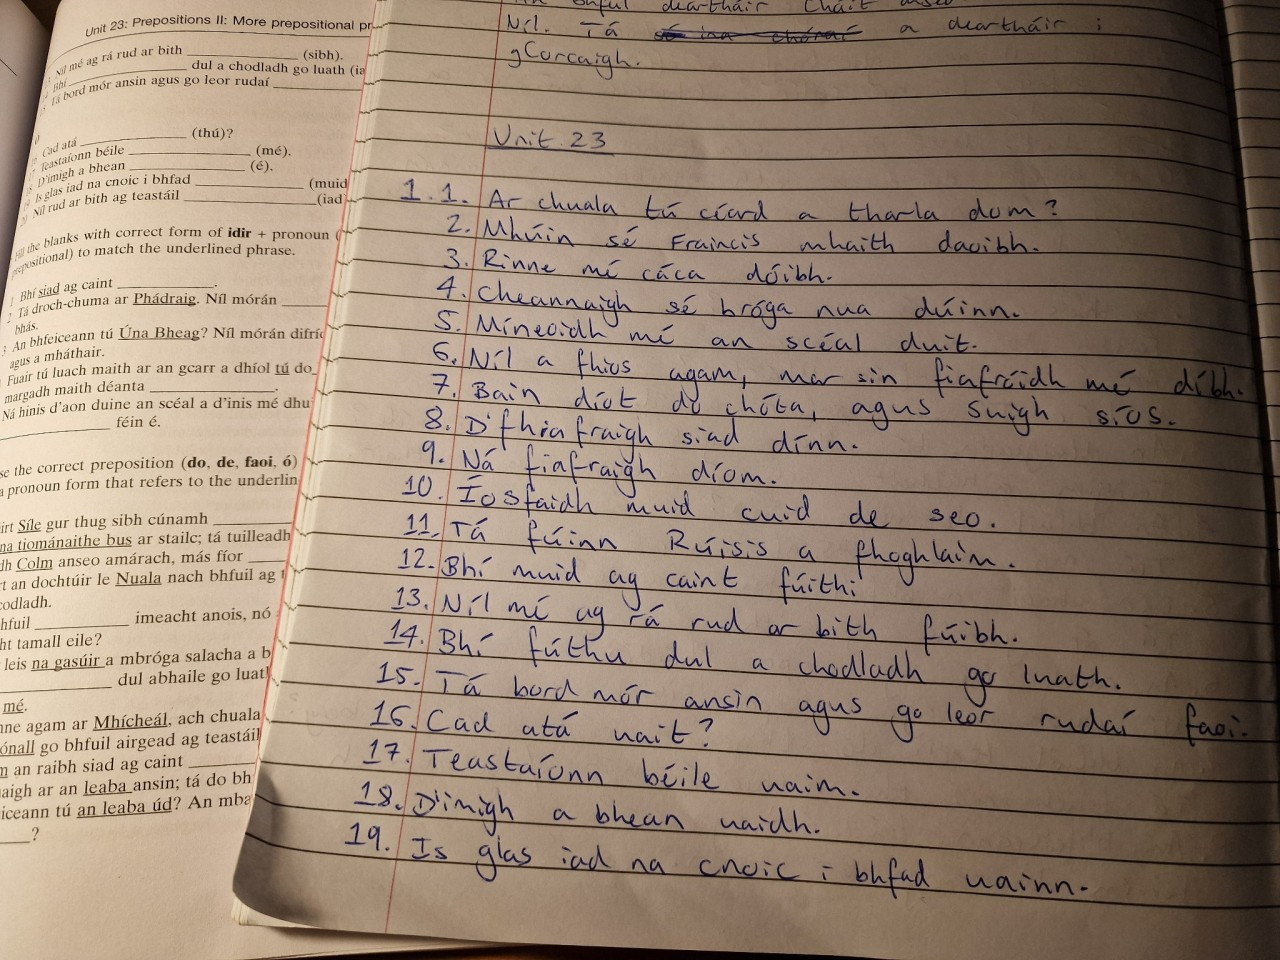 Unit 23: Prepositions II: More prepositional pr
Níl mé ag rá rud ar bith (sibh).
Bhí dul a chodladh go luath (ia
Tá bord mór ansin agus go leor rudaí
Cad atá (thú)?
Teastaíonn béile (mé).
D'imigh a bhean (é).
Is glas iad na cnoic i bhfad (muid
20 Níl rud ar bith ag teastáil (iad
the blanks with correct form of idir + pronoun (
prepositional) to match the underlined phrase.
1 Bhí siad ag caint .
2 Tá droch-chuma ar Phádraig. Níl mórán
bhás.
3 An bhfeiceann tú Úna Bheag? Níl mórán difríc
agus a mháthair.
Fuair tú luach maith ar an gcarr a dhíol tú do
margadh maith déanta .
Ná hinis d'aon duine an scéal a d'inis mé dhu
féin é.
se the correct preposition (do, de, faoi, ó)
a pronoun form that refers to the underlin
irt Síle gur thug sibh cúnamh
na tiománaithe bus ar stailc; tá tuilleadh
dh Colm anseo amárach, más fíor
rt an dochtúir le Nuala nach bhfuil ag t
codladh.
hfuil imeacht anois, nó
ht tamall eile?
leis na gasúir a mbróga salacha a b
dul abhaile go luat
mé.
nne agam ar Mhícheál, ach chuala
ónall go bhfuil airgead ag teastáil
n an raibh siad ag caint
aigh ar an leaba ansin; tá do bh
iceann tú an leaba úd? An mba
?
bhfuil deartháir Cháit anseo
Níl. Tá a deartháir i
gCorcaigh.
Unit 23
1. 1. Ar chuala tú céard a tharla dom?
2. Mhúin sé Fraincis mhaith daoibh.
3. Rinne mé cáca dóibh.
4. Cheannaigh sé bróga nua dúinn.
5. Míneoidh mé an scéal duit.
6. Níl a fhios agam, mar sin fiafróidh mé díbh.
7. Bain díot do chóta, agus suigh síos.
8. D'fhiafraigh siad dínn.
9. Ná fiafraigh díom.
10. Íosfaidh muid cuid de seo.
11. Tá fúinn Rúisis a fhoghlaim.
12. Bhí muid ag caint fúithi
13. Níl mé ag rá rud ar bith fúibh.
14. Bhí fúthu dul a chodladh go luath.
15. Tá bord mór ansin agus go leor rudaí faoi.
16. Cad atá uait?
17. Teastaíonn béile uaim.
18. D'imigh a bhean uaidh.
19. Is glas iad na cnoic i bhfad uainn.